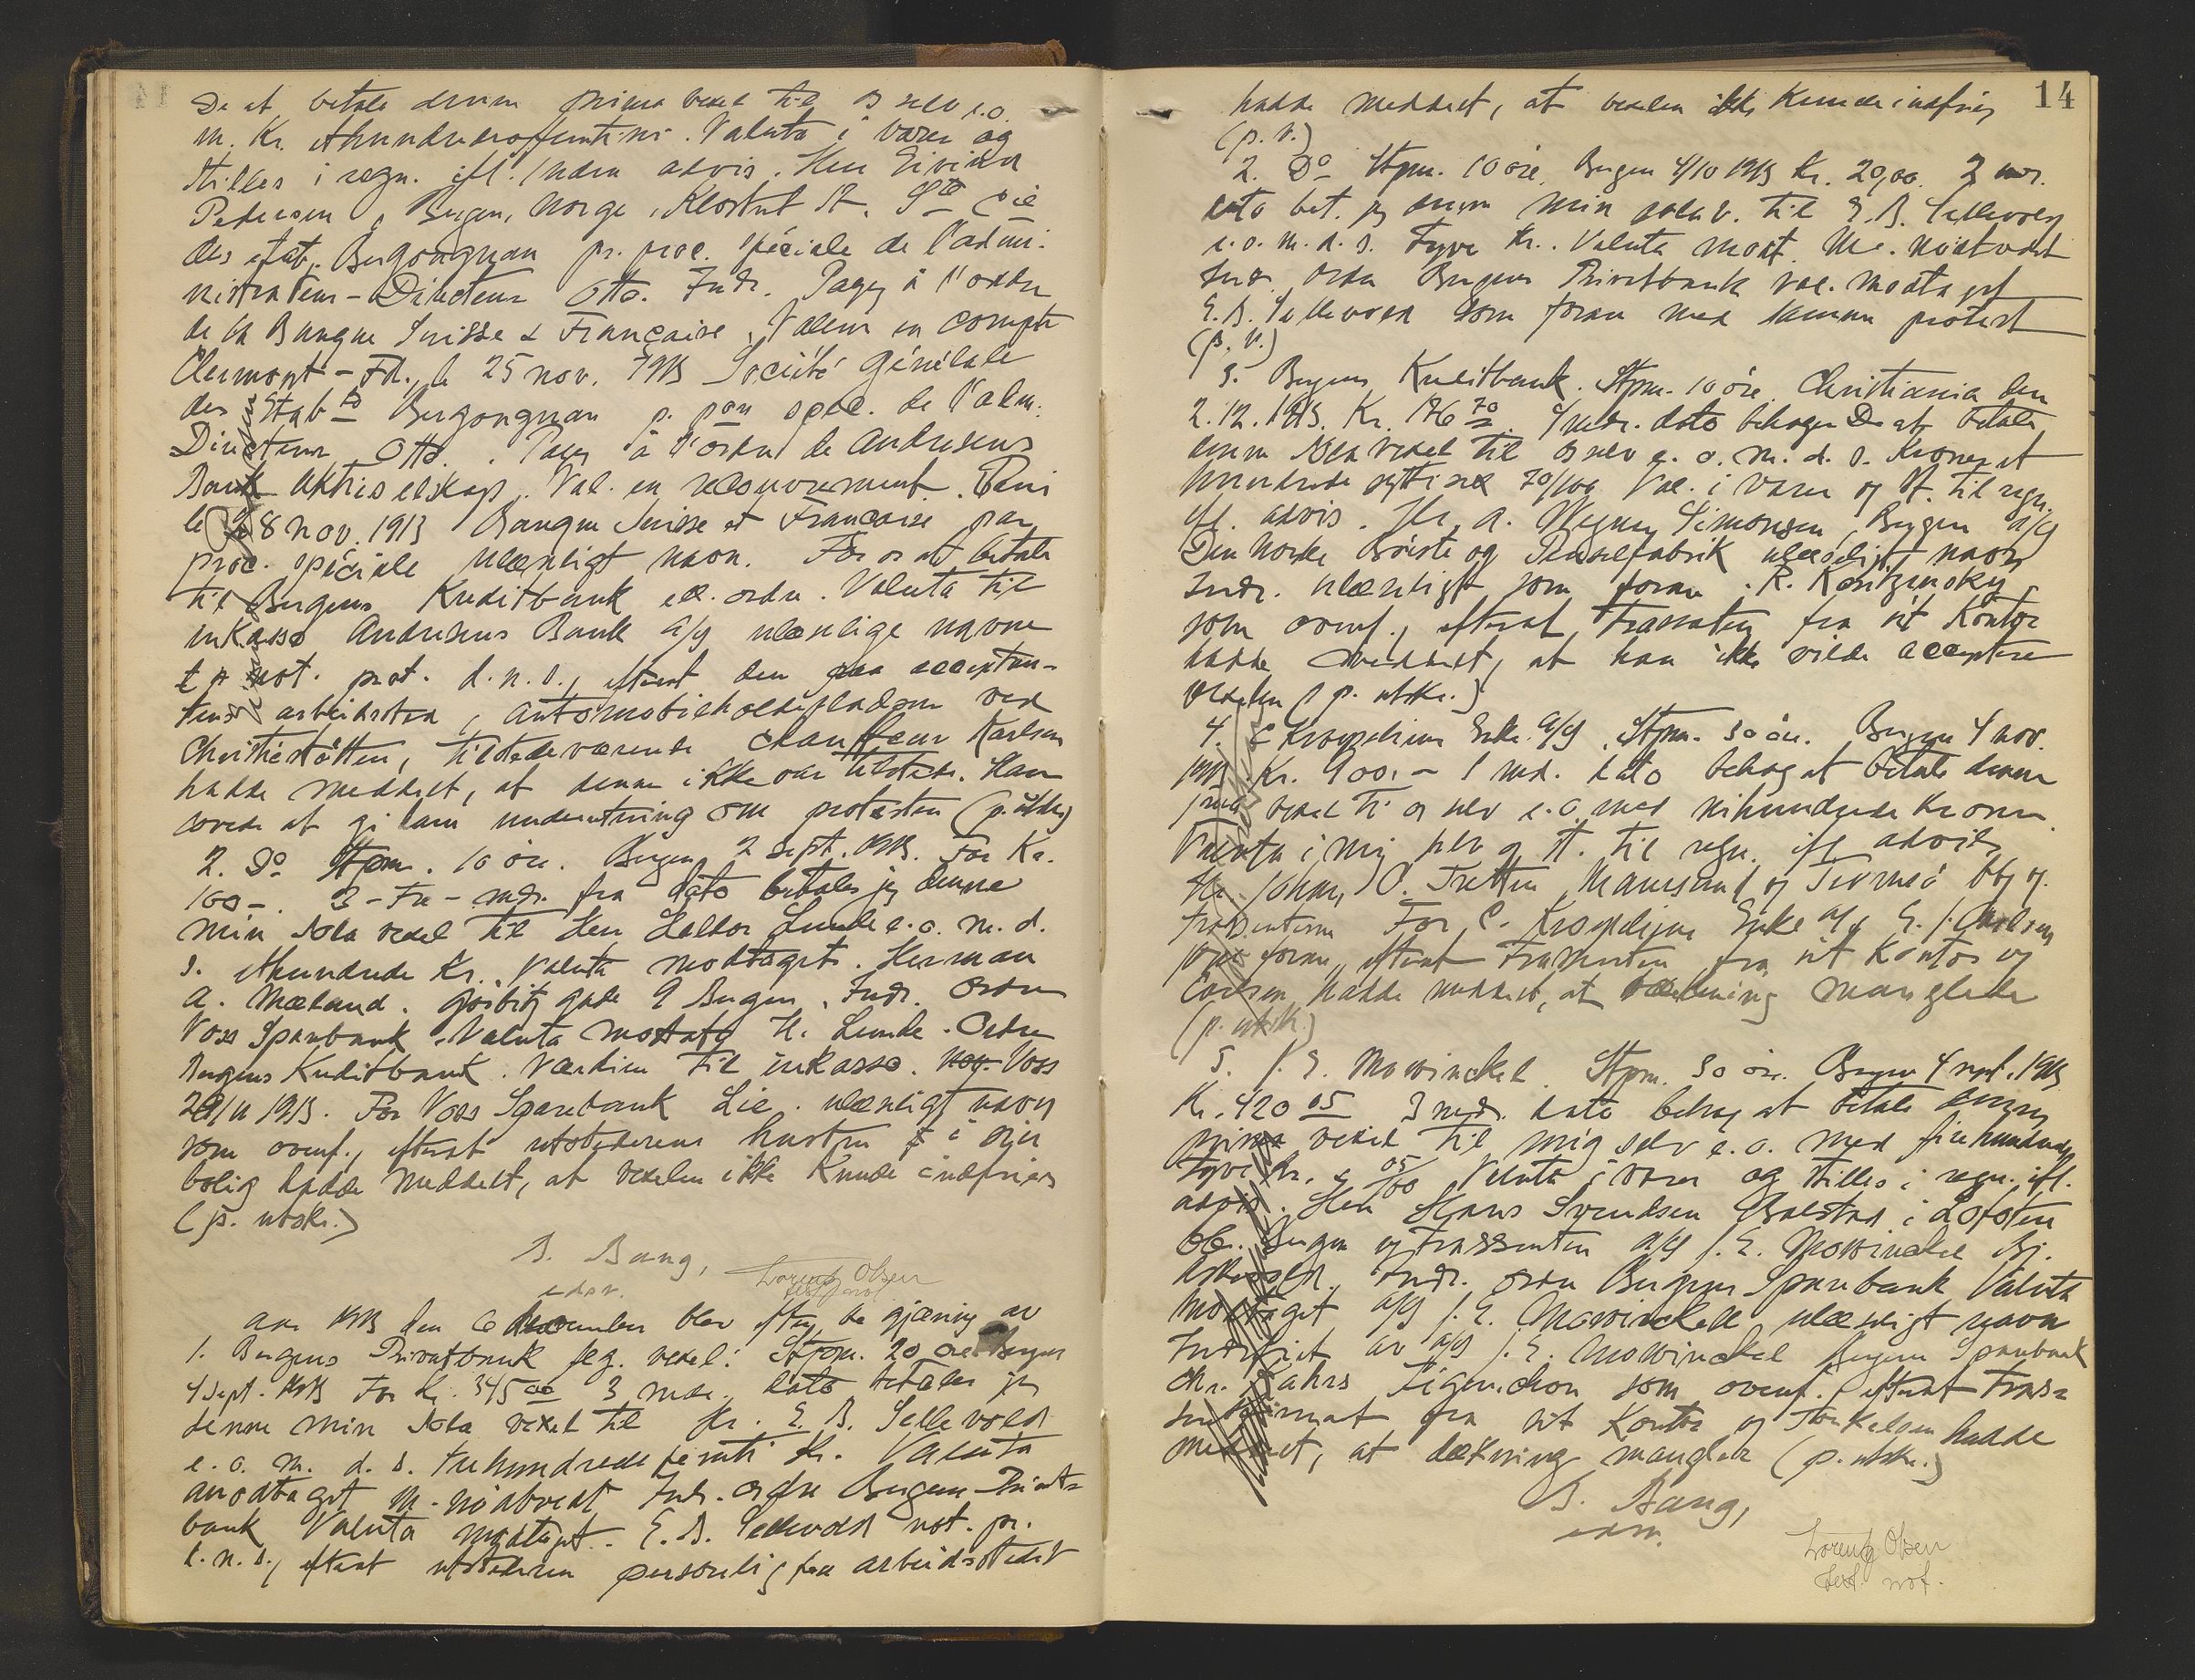 De at betale denne prima vexel til os selv e.o.
m. Kr. ethundrede Valuta i varer og
stilles i regn. ifl. Uden advis. Herr Eivind
Pedersen, Bergen, Norge, Klostret St. Sté
des etab. Bergougnan pr. proc. spéciale de l'admi-
nistrateur-Directeur Otto. Indr. Payez à l'ordre
de la Banque Suisse & Française, Valeur en compte
Clermont-Fd., le 25 nov. 1913 Société Générale
des Etab ts Bergougnan p. pon spéc. de l'adm.
Directeur Otto. Payez à l'ordre de Andresens
Bank Aktieselskap. Val. en recouvrement. Paris
le 28 nov. 1913 Banque Suisse et Francaise par
proc. spéciale ulæseligt navn. For os at betale
til Bergens Kreditbank el. ordre. Valuta til
inkasso Andresens Bank a/s ulæselige navne
not. prot. d.n.s., efterat den paa acceptan-
tens arbeidssted, automobilholdepladsen ved
Christiestøtten, tilstedeværende chauffeur Karlsen
hadde meddelt, at denne ikke var tilstede. Han
lovede at gi ham underretning om protesten (p. utskr.)
2. Do Stpm. 10 öre. Bergen 2 sept. 1913. For Kr.
100-. 3-Tre-mdr. fra dato betaler jeg denne
min Sola vexel til Herr Haldor Lunde e.o. m. d.
s. ethundrede Kr. Valuta modtaget. Herman
A. Mæland. gade 9 Bergen. Indr. Ordre
Voss Sparebank. Valuta mottatt H. Lunde. Ordre
Bergens Kreditbank. Værdien til inkasso. Voss
28/11 1913. For Voss Sparebank Lie. ulæseligt navn
som ovenf., efterat utstederens hustru i sin
bolig hadde meddelt, at vexelen ikke kunde indfries
(p. utskr.)
B. Bang,
edsv.
Lorentz Olsen
test. not.
Aar 1913 den 6 december blev efter begjæring av
1. Bergens Privatbank flg. vexel: Stpm. 20 öre Bergen
4 sept. 1913 For Kr. 345 00 3 mdr. dato betaler jeg
denne min Sola vexel til Hr. E. B. Sellevold
e. o. m. d. s. trehundrede femti Kr. Valuta
modtaget M. Nödtvedt Indr. Ordre Bergens Privat-
bank Valuta modtaget. E. B. Sellevold not. pr.
d. n. s., efterat utstederen personlig paa arbeidsstedet
14
hadde meddelt, at vexelen ikke kunde indfries
(p. V.)
2. Do Stpm. 10 öre. Bergen 4/10 1913 Kr. 20,00. 2 mdr.
dato bet. jeg denne min sola v. til E. B. Sellevold
e. o. m. d. s. Tyve Kr. Valuta modt. M. Nödtvedt
Indr. Ordre Bergens Privatbank val. modtaget
E. B. Sellevold som foran med samme protest
(p. V.)
3. Bergens Kreditbank. Stpm. 10 öre. Christiania den
2.12.1913. Kr. 186 70. 4 mdr. dato behager De at betale
denne Sola vexel til os selv e. o. m. d. s. Kroner et
hundrede otti sex 70/100 Val. i varer og st. til regn.
ifl. advis. Hr. A. Wegner Simonsen, Bergen a/s
Den norske Börste og Penselfabrik ulæseligt navn
Indr. ulæseligt som foran. R. Koritzinsky,
som ovenf., efterat Trassaten fra sit Kontor
hadde meddelt, at han ikke vilde acceptere
vexelen (p. utskr.)
4. C Kroepeliens Enke a/s. Stpm. 30 öre. Bergen 4 nov.
1913. Kr. 900,- 1 md. dato behag at betale denne
prima vexel til os selv e. o. med nihundrede Kroner
Valuta i mig selv og st. til regn. ifl advis
Hr. Johan C. Tretten Maursund og Tromsö bbg og
trassenterne For C. Kroepeliens Enke a/s E. J. Carlsen
som foran, efterat Trassenten fra sit Kontor og
Carlsen hadde meddelt, at dækning manglede
(p. utsk.)
5. J. E. Mowinckel. Stpm. 30 öre. Bergen 4 sept. 1913
Kr. 420 05 3 mdr. dato behag at betale denne
prima vexel til mig selv e. o. med firehundrede
tyve Kr. & 05/00 Valuta i varer og stilles i regn. ifl.
advis. Herr Hans Svendsen Balstad i Lofoten
bb. Bergen og Trassenten a/s J. E. Mowinckel
Indr. ordre Bergens Sparebank Valuta
modtaget a/s J. E. Mowinckel ulæseligt navn
Indfriet av a/s J. E. Mowinckel Bergens Sparebank
Chr. Jahrs som ovenf., efterat Tras-
fra sit Kontor og Torkelsen hadde
meddelt, at dækning mangler (p. utskr.)
B. Bang,
edsv.
Lorentz Olsen
test. not.